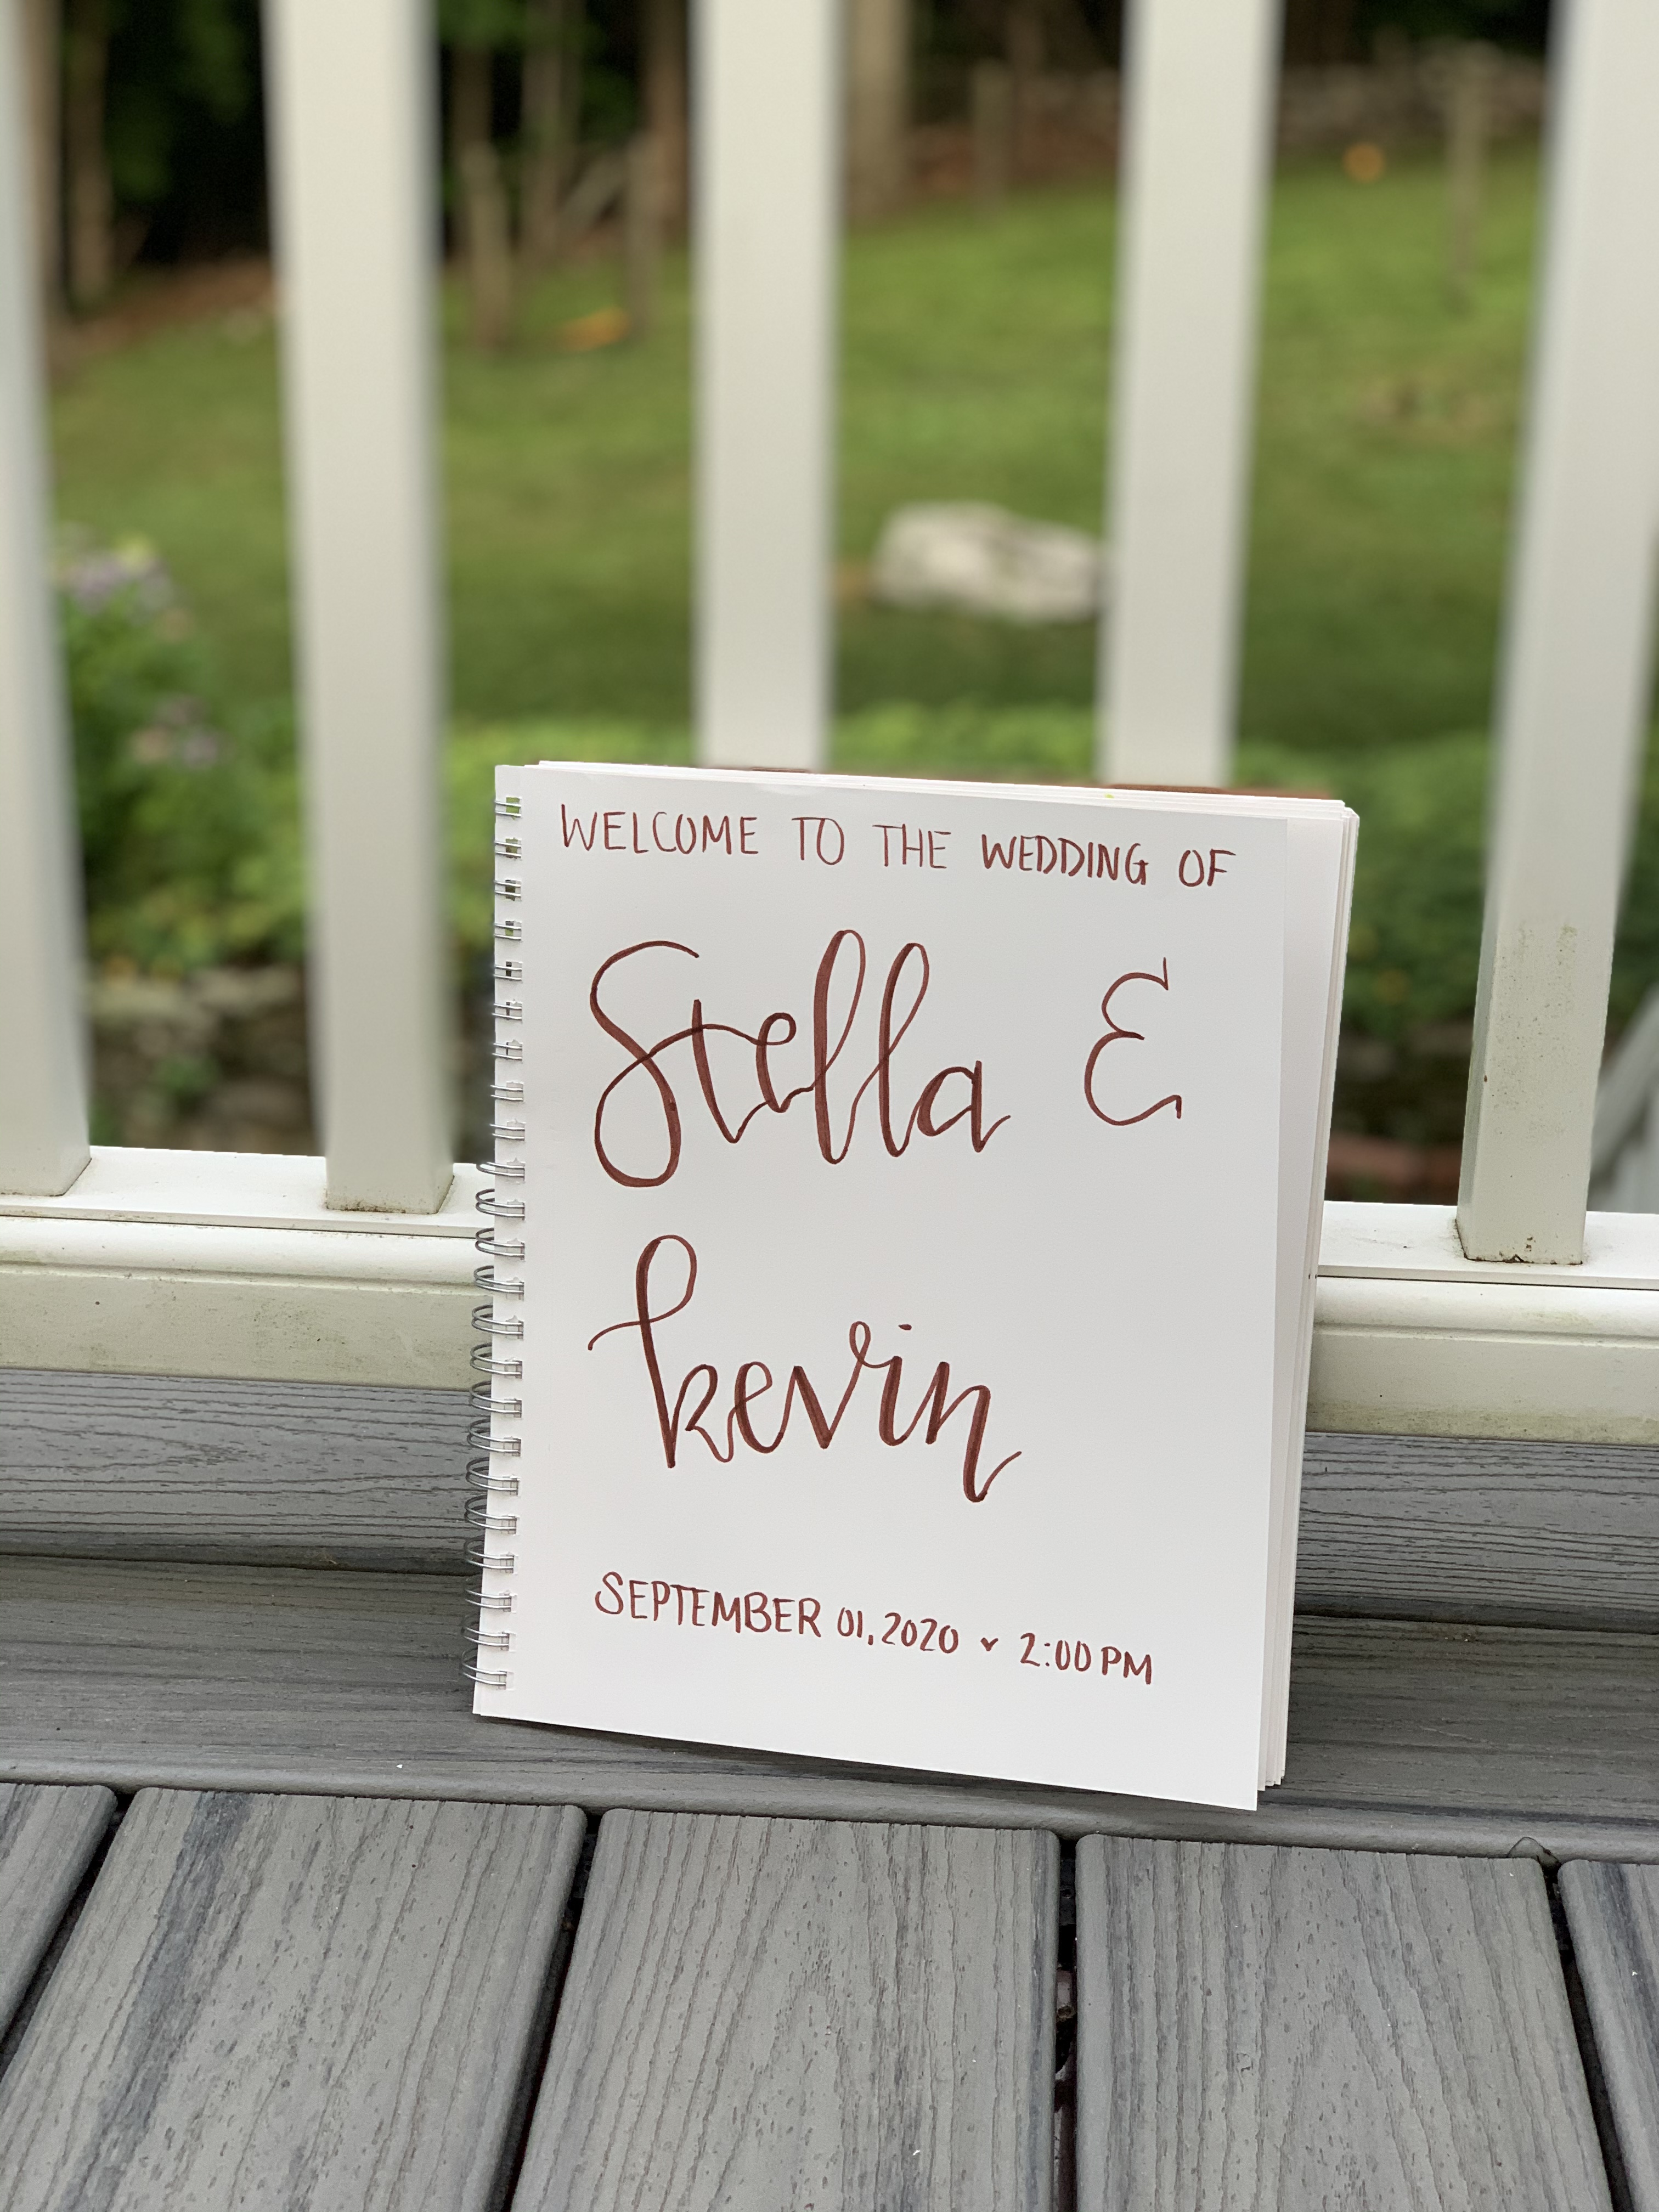 WELCOME TO THE WEDDING OF
Stella &
kevin
SEPTEMBER 01, 2020 ♥ 2:00 PM